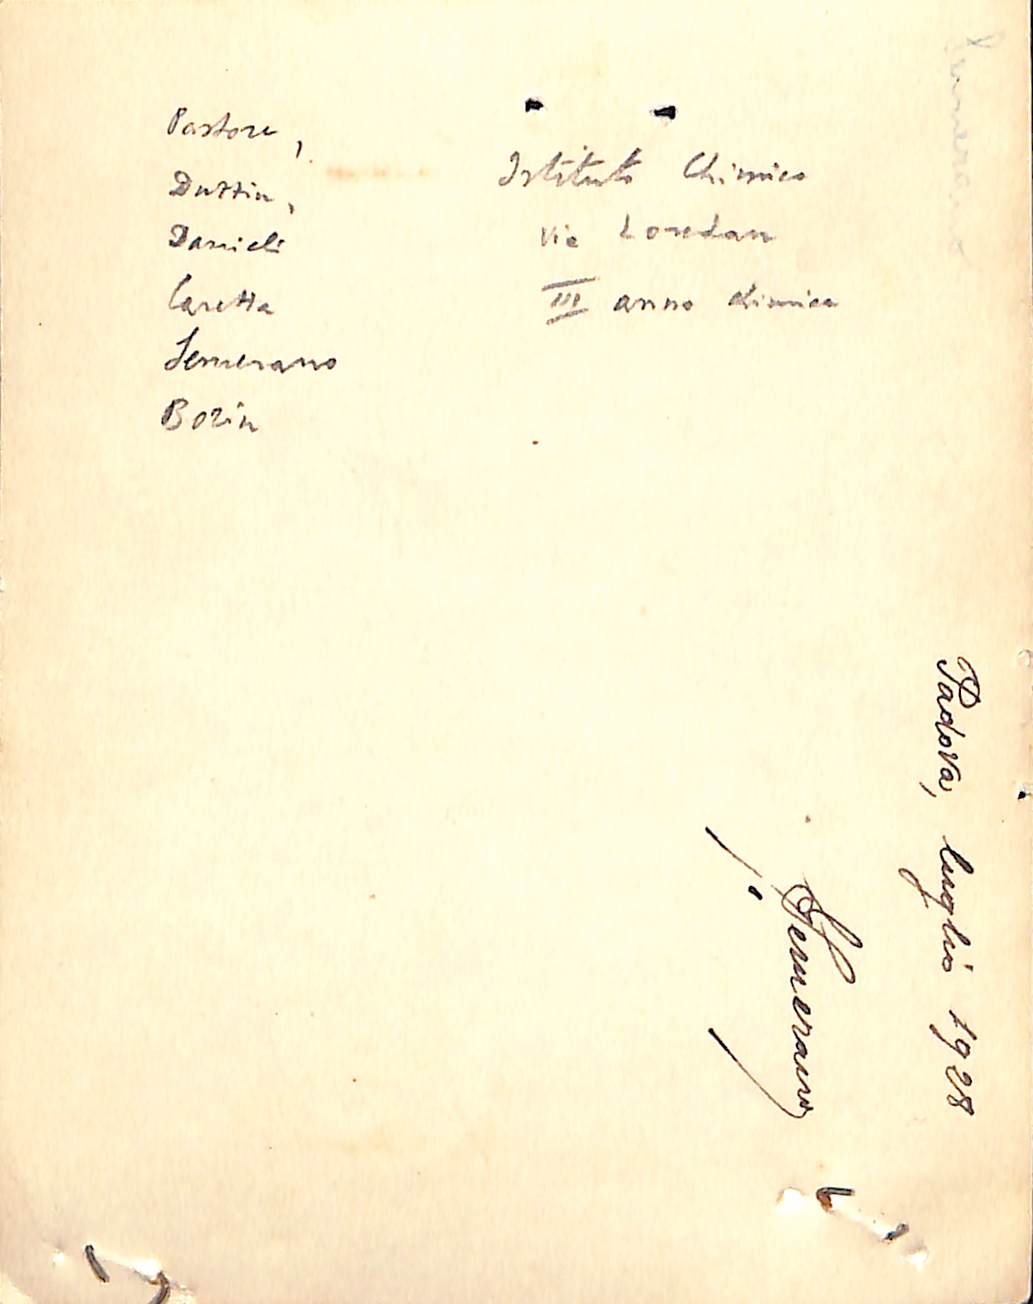 Pastore,
Duzzin,
Danieli
Caretta
Semerano
Bozin
Istituto Chimico
Via Loredan
III anno chimica
Padova, luglio 1928
Semerano
Semerano